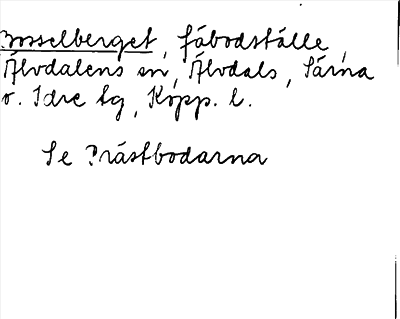 Bosselberget, fäbodställe,
Älvdalens sn, Älvdals, Särna
o. Idre tg, Kopp. l.
Se Prästbodarna